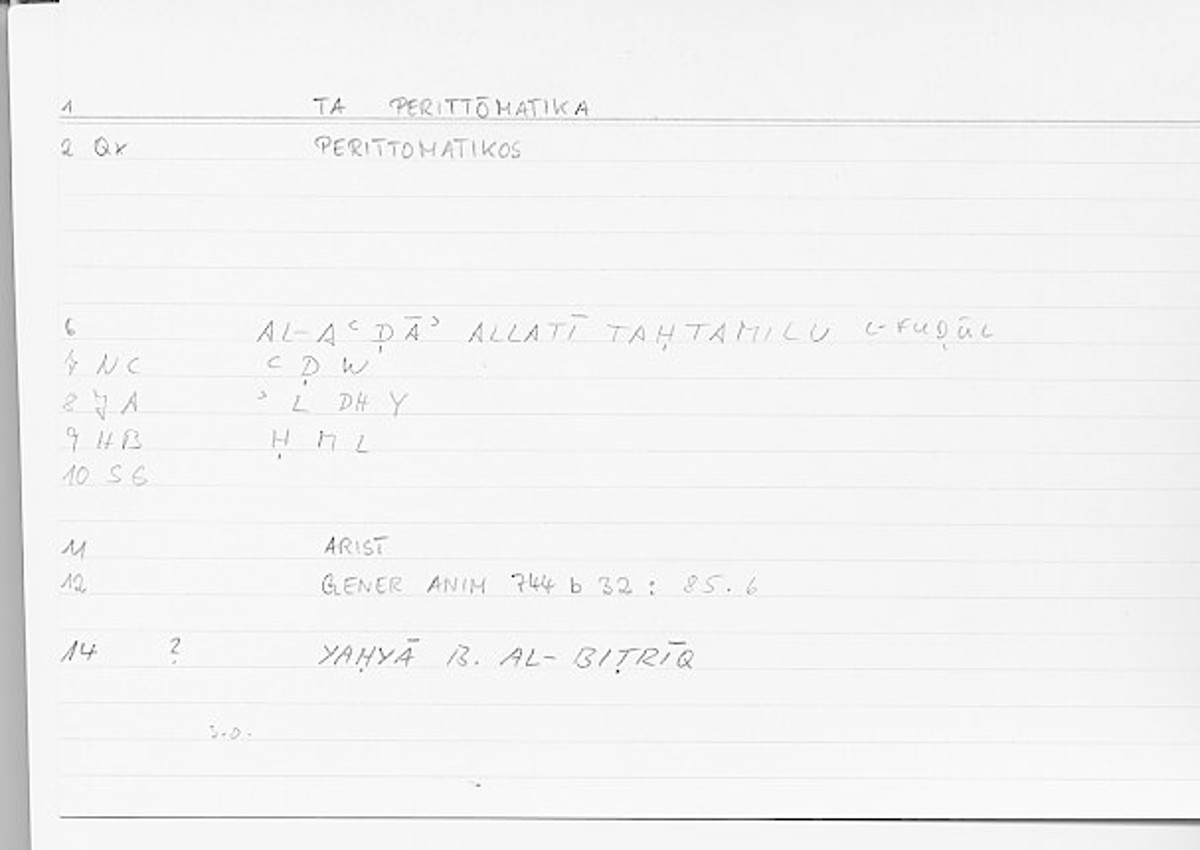 1 TA PERITTŌMATIKA
2 Qx PERITTOMATIKOS
6 AL-AʿḌĀʾ ALLATĪ TAḤTAMILU L-FUḌŪL
7 NC ʿ Ḍ W
8 JA ʾ L DH Y
9 HB Ḥ M L
10 SG
11 ARIST
12 GENER ANIM 744 b 32 : 85.6
14 ? YAḤYĀ B. AL-BIṬRĪQ
s.o.